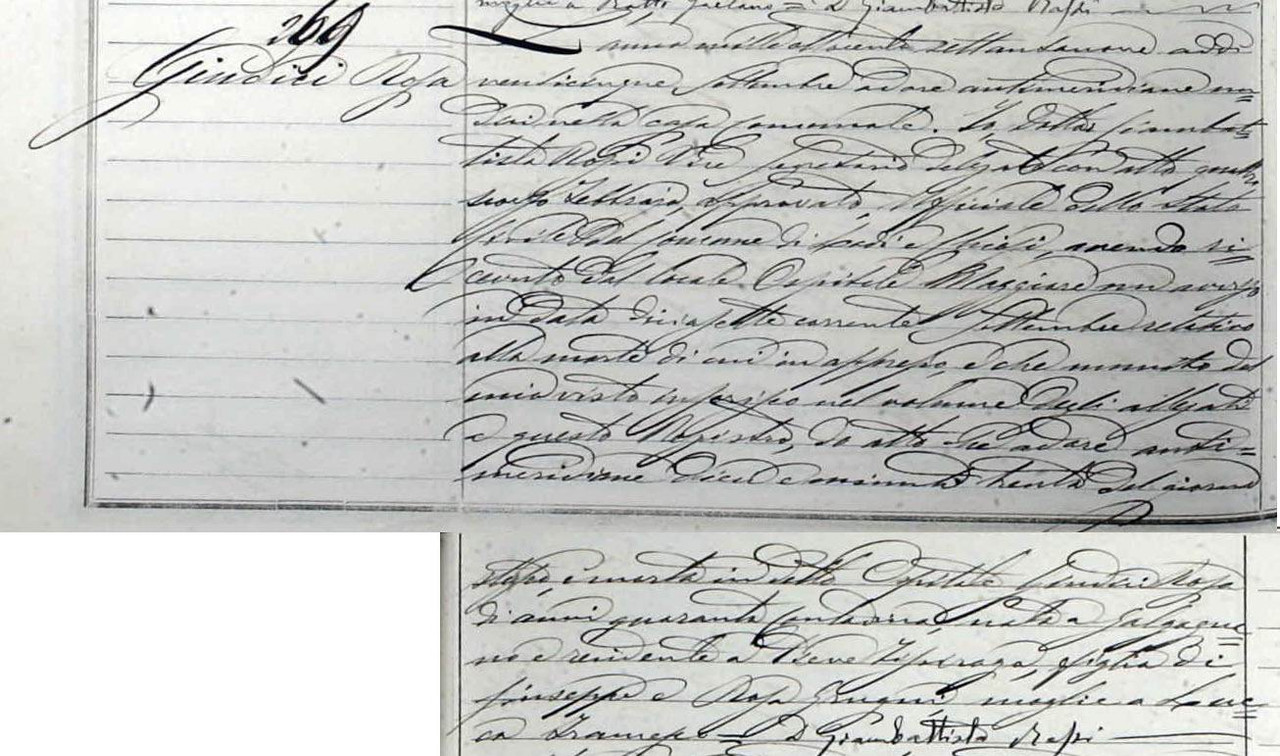 moglie a Ratti Gaetano = D Giambattista Rossi
269
L'anno mille ottocento settantanove addì
Giudici Rosa
venticinque Settembre ad ore antimeridiane un=
Dici nella casa Comunale. Io Dottor Giambat=
tista Rossi Vice Segretario delegato con atto quattro
scorso Febbraio, approvato, Uffiziale dello Stato
Civile Del Comune di Lodi e Chiosi, avendo ri=
cevuto dal locale Ospitale Maggiore un avviso
in data diciasette corrente Settembre relativo
alla morte di cui in appresso, e che munito del
mio visto inserisco nel volume degli allegati
a questo Registro, do atto che ad ore anti=
meridiane dieci e minuti trenta del giorno
stesso, è morta in detto Ospitale Giudici Rosa
di anni quaranta contadina, nata a Galgagna=
no e residente a Pieve Fissiraga, figlia di
Giuseppe e Rosa moglie a Luc=
ca = D Giambattista Rossi